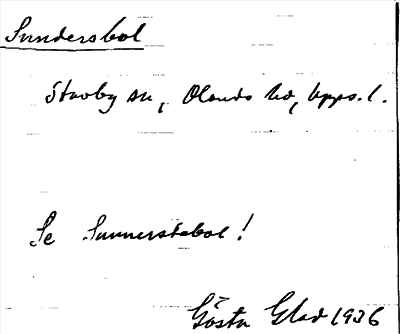 Sundersbol
Stavby sn, Olands hd, Upps. l.
Se Sunnerstabol!
Gösta Glad 1936